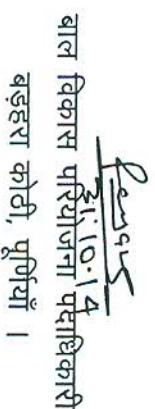 31.10.14
बाल विकास परियोजना पदाधिकारी
बड़हरा कोठी, पूर्णियाँ ।